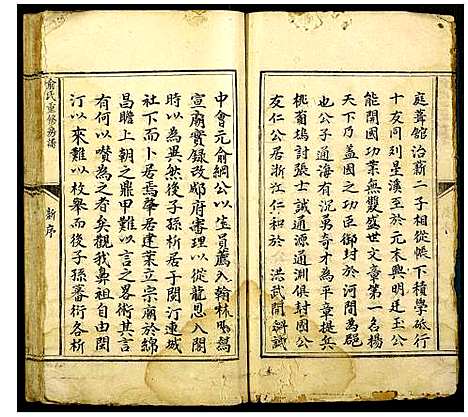 庭葺館洽薪二子相從帳下積學砥行
十友同列星溪至於元末興明廷玉公
能開國功業無雙盛世文章第一名楊
天下乃蓋國之功臣御封於河間為郡
公子通海有沉勇奇才為平章提兵
桃萄塢討張士誠通源通淵俱封國公
友仁公居浙江仁和於 洪武開科試
中會元俞綱公以生員薦入翰林陞為
宣廟實錄改郕府審理以從龍恩入閣
時以為異然後子孫析居于閩汀連城
社下而卜居焉肇居建業立宗廟於綿
昌瞻上朝之鼎甲難以言之畧術其言
有何以讚為之者矣觀我鼻祖自由閩
汀以來難以枚舉而後子孫蕃衍各析
俞氏重修族譜
新序